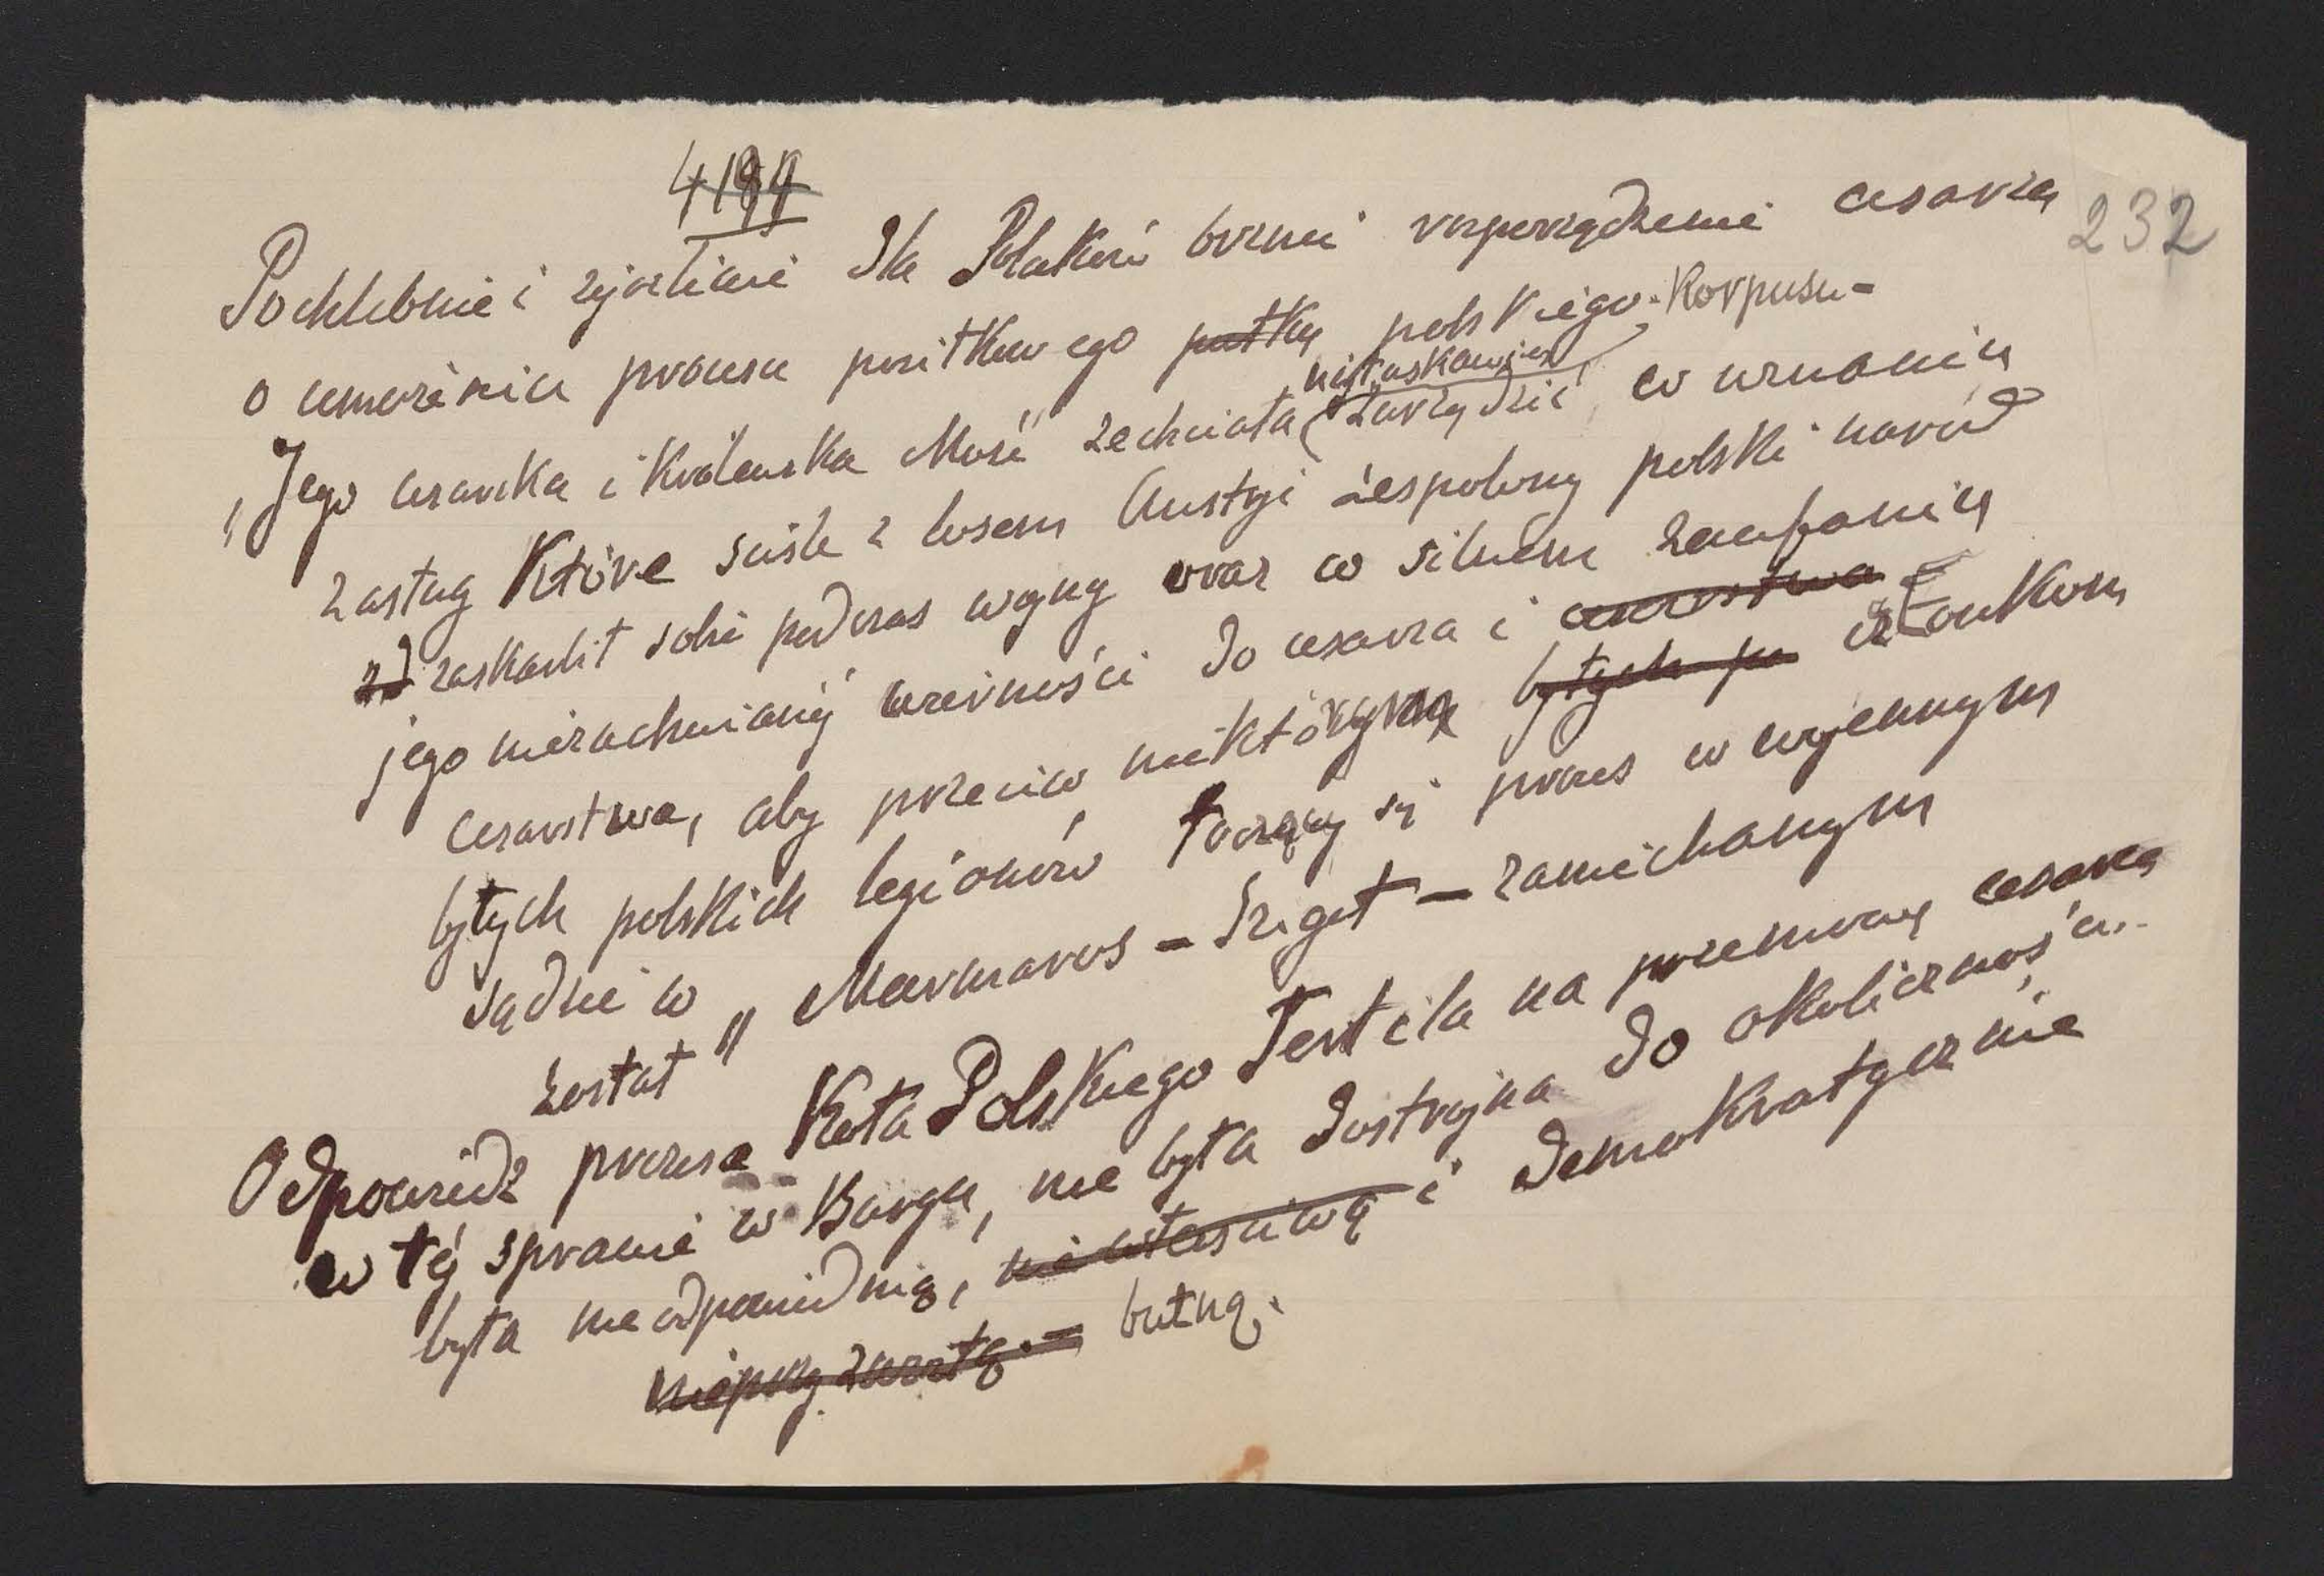 4189
232
Pochlebnie i życzliwie dla Polaków brzmi rozporządzenie cesarza
o umorzeniu procesu posiłkowego pułku polskiego Korpusu-
najłaskawiej
„Jego cesarska i Królewska Mość zechciała zarządzić, w uznaniu
zasług które ściśle z losem Austyi zespolony polski naród
zaskarbił sobie podczas wojny oraz w silnem zaufaniu
jego niezachwianéj wierności do cesarza i cesarstwa
cesarstwa, aby przeciw niektórym byłych po członkom
byłych polskich legionów toczący się proces w wojennym
sądzie w „Marmaros - Sziget - zaniechanym
został"
Odpowiedź prezesa Koła Polskiego Tertila na przemowę cesarza
w téj sprawie w Burgu, nie była dostrojna do okoliczności..
była nieodpowiednią, niewłaściwą i demokratycznie
butną.